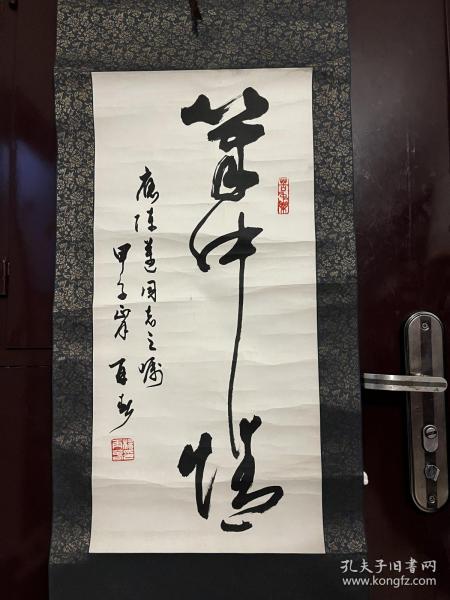 笔中情
应陈莲同志之嘱
甲子
孔夫子旧书网
www.kongfz.com